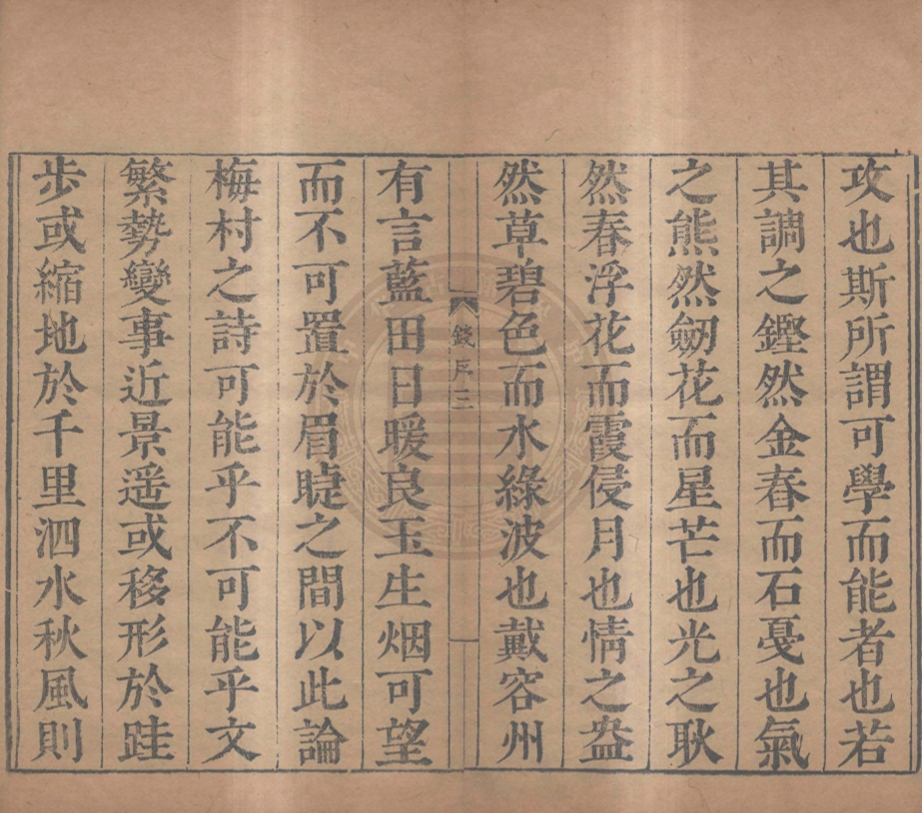 攻也斯所謂可學而能者也若
其調之鏗然金舂而石戞也氣
之熊然劒花而星芒也光之耿
然春浮花而霞侵月也情之盎
然草碧色而水綠波也戴容州
錢序三
有言藍田日暖良玉生烟可望
而不可置於眉睫之間以此論
梅村之詩可能乎不可能乎文
繁勢變事近景遥或移形於跬
步或縮地於千里泗水秋風則